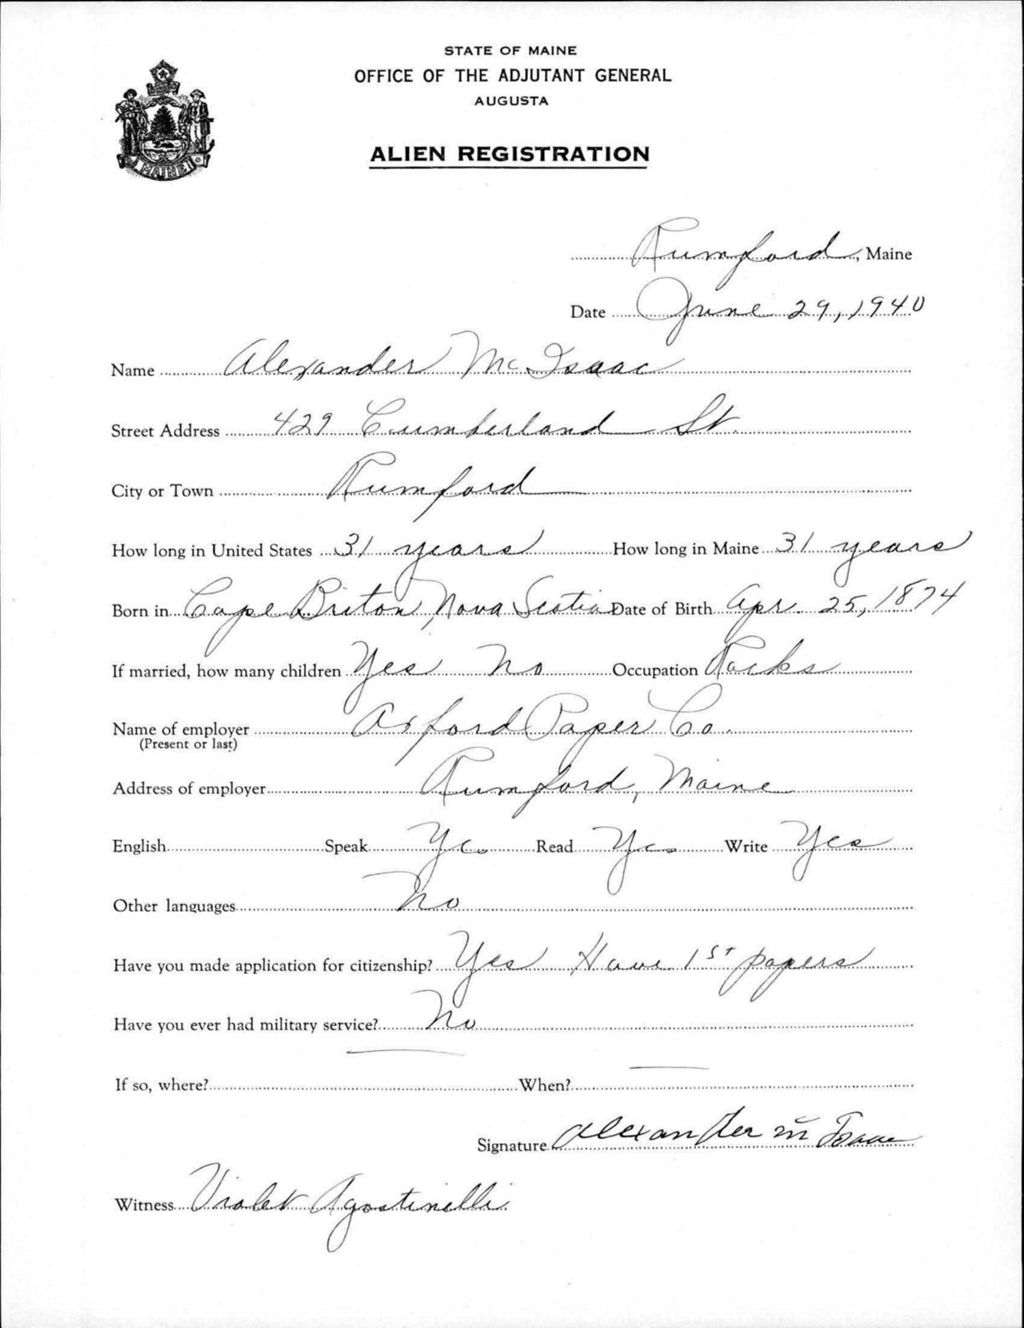 STATE OF MAINE
OFFICE OF THE ADJUTANT GENERAL
AUGUSTA
ALIEN REGISTRATION
MAINE
Rumford, Maine
Date June 29, 1940
Name Alexander McIsaac
Street Address 429 Cumberland St.
City or Town Rumford
How long in United States 31 years How long in Maine 31 years
Born in Cape Briton, Nova Scotia Date of Birth Apr. 25, 1874
If married, how many children Yes No Occupation Racks
Name of employer Oxford Paper Co.
(Present or last)
Address of employer Rumford, Maine
English Speak Yes Read Yes Write Yes
Other languages No
Have you made application for citizenship? Yes Have 1st papers
Have you ever had military service? No
If so, where? When?
Signature Alexander Mc Isaac
Witness Violet Agostinelli